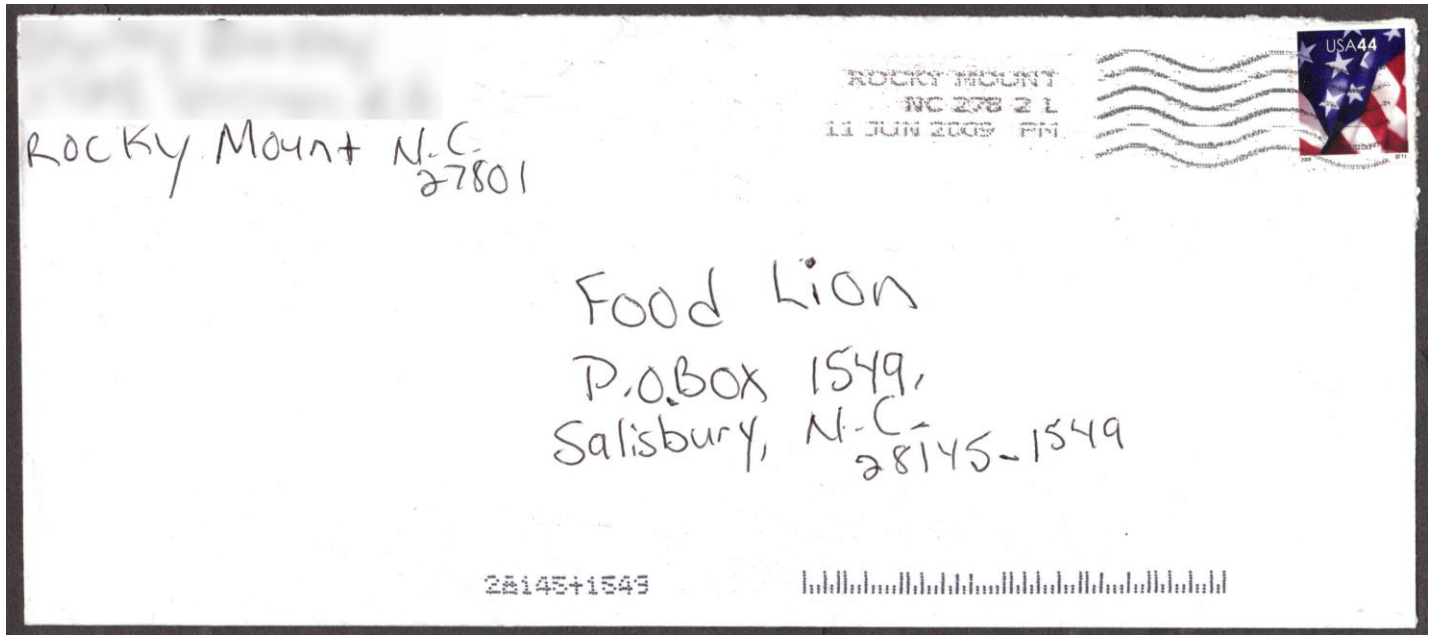 Rocky Mount N.C.
27801
ROCKY MOUNT
NC 278 2 L
11 JUN 2009 PM
USA44
Food Lion
P.O.Box 1549,
Salisbury, N.C.
28145-1549
28145+1549